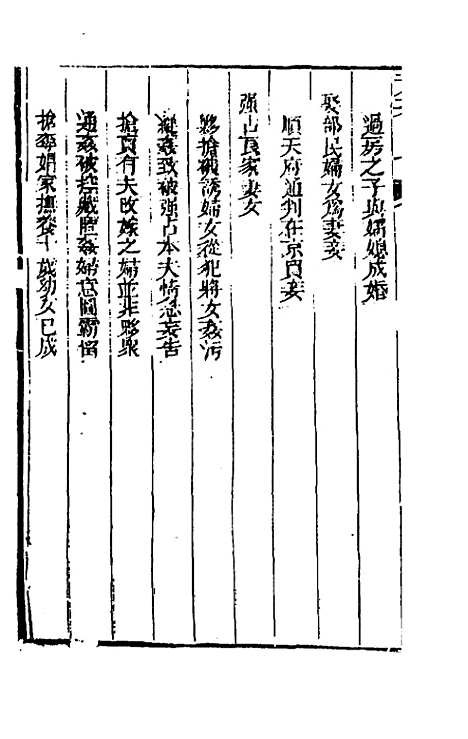 過房之子與嬸娘成婚
娶部民婦女爲妻妾
順天府通判在京買妾
强占良家妻女
夥搶被誘婦女從犯將女姦污
縱姦致被强占本夫情急妄告
搶賣有夫改嫁之婦並非夥衆
通姦被控藏匿姦婦意圖霸留
搶奪娼家撫養十歲幼女已成